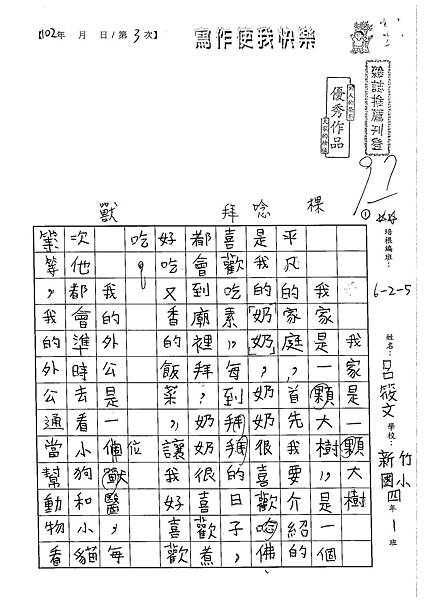 【102年　月　日/第3次】
寫作使我快樂
雜誌推薦刊登
優秀作品
97
培根編班：
6-2-5
姓名：呂筱文
學校：新竹國小四年1班
獸 拜 唸 棵
我家是一顆大樹
我家是一顆大樹，是一個
平凡的家庭，首先我要介紹的
是我的「奶奶」，奶奶很喜歡唸佛
喜歡吃素，每到拜拜的日子，
都會到廟裡拜，奶奶很喜歡煮
好吃又香的飯菜，讓我好喜歡
吃。
我的外公是一位獸醫，每
次他都會準時去看小狗和小貓
等等，我的外公通當幫動物看